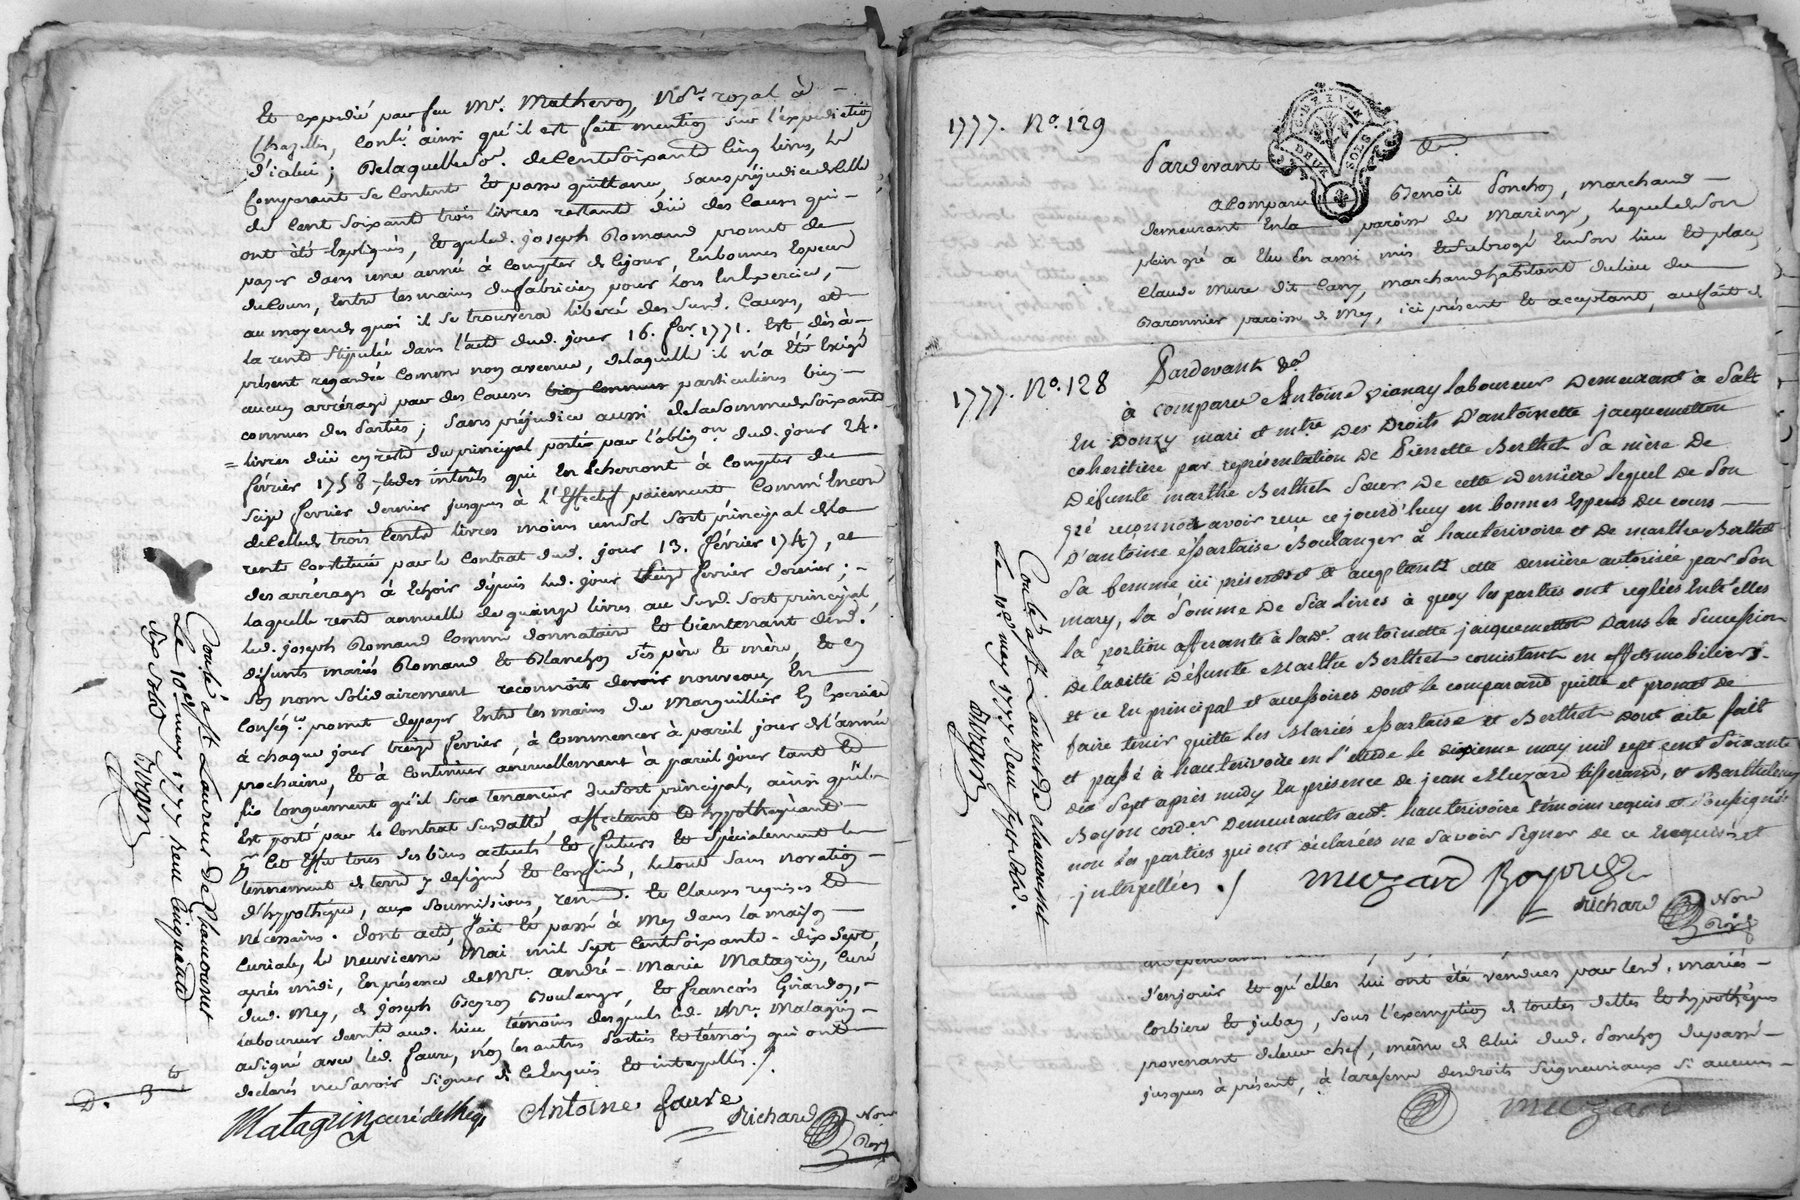 Et expedié par feu Mr. Mathevon, Nore. royal à -
Chazelles, conlé. ainsi qu'il est fait mention sur l'expedition
d'icelui ; Delaquelle so. de Cent soixante cinq livres, le
Comparant se Contente Et passe quittance, Sans préjudice de celle
de Cent soixante trois livres restante düe des Causes qui -
ont été Expliquées, Et que led. joseph Romand promet de
payer dans une année à Compter de ce jour, En bonnes Especes
de Cours, Entre les mains du fabricien pour lors En Exercice, -
au moyen de quoi il se trouvera libéré des Susd. Causes, et
la rente Stipulée dans l'acte dud. jour 16. fer. 1771. Est dès à -
présent regardée Comme non avenue, de laquelle il n'a Eté Exigé
aucun arrérage par des Causes particulieres bien -
connues des Parties ; Sans préjudice aussi de la Somme de Soixante
= livres düe en reste du principal portée par l'oblig.on dud. jour 24.
février 1758, & des intérêts qui En Echerront à Compter du
Seize fevrier dernier jusques à l'Effectif paiement Comme Encore
de Celle de trois Cents livres moins un sol Sort principal de la
rente Constituée par le Contrat dud. jour 13. février 1747, et
des arrérages à Echoir dépuis led. jour treize fevrier dernier ; -
laquelle rente annuelle de quinze livres au Susd. Sort principal
led. joseph Romand Comme donnataire Et bientenant desd.
défunts mariés Romand Et Blanchon Ses père Et mère, Et En
Son nom Solidairement reconnoit de nouveau, En
Conséq.ce promet de payer Entre les mains du Marguillier En Exercice
à chaque jour treize fevrier, à Commencer à pareil jour de l'année
prochaine, Et à Continuer annuellement à pareil jour tant Et
si longuement qu'il sera tenancier du Sort principal, ainsi qu'il -
Est porté par le Contrat Susdatté, affectant Et hypothequant
à Cet Effet tous Ses biens actuels Et futurs Et Spécialement le
tennement de terre y designé Et Confiné, le tout Sans novation -
d'hypotheque, aux Soumissions, renond. Et Clauses requises Et
nécessaires. Dont acte, fait Et passé à Mey dans la maison -
Curiale, le neuvieme Mai mil Sept Cent Soixante - dix Sept
après midi, En présence de Mr. andré - Marie Matagrin, Curé
dud. Mey, de joseph Boulanger, Et françois Girardon, -
laboureur demt. aud. lieu témoins desquels led. Mr. Matagrin -
a signé avec led. faure, non les autres Parties Et témoin qui ont
declaré ne Savoir Signer de Ce Enquis Et interpellés. /.
Matagrin curé de Mey Antoine faure
Richard Nore
Royal
Conlé à St. Laurent de Chamousset
Le 10e. may 1777 reçu
Six Sols
Burgon
1777. No. 129
DEUX SOLS
Pardevant &a
a Comparu Benoît Ponchon, marchand -
demeurant En la paroisse de Maringe, lequel de Son
plein gré a Elu En ami mis Et Subrogé En Son lieu Et place
Claude Mure dit Cany, marchand habitant du lieu du
Baronnier paroisse de Mey, ici présent Et acceptant, au fait de
1777. No. 128
Pardevant &a
à comparu Antoine Vianay laboureur Demeurant à Salt
En Donzy mari et mtre. Des Droits D'antoinette jacquemetton
coheritiere par représentation De Pierrette Berthet Sa mère De
Défunte marthe Berthet Sœur De cette Dernière lequel de Son
gré reconnoît avoir reçu ce jourd'huy en bonnes Especes Du cours -
D'antoine essartaise Boulanger à hauterivoire et De marthe Berthet
Sa femme ici présents et acceptants cette dernière autorisée par Son
mary, la Somme De Dix Livres à quoy les parties ont reglées Entr'elles
la portion afferante à lade. antoinette jacquemetton Dans la Succession
De laditte Défunte Marthe Berthet consistant en effets mobiliers
et ce En principal et accessoires Dont le comparand quitte et promet De
faire tenir quitte les Mariés essartaise et Berthet Dont acte fait
et passé à hauterivoire en l'etude le dixieme may mil sept cent Soixante
dix Sept après midy En présence de jean Muzard tisserand, et Barthelemy
Boyon cordier Demeurants aud. hauterivoire témoins requis et Soussignés
non les parties qui ont déclarées ne Savoir Signer de ce Enquises et
interpellées ./
Muzard Boyon
Richard Nore
Royal
Conlé à St. Laurent de chamousset
Le 10e. may 1777 Reçu
Burgon
d'en jouir Et qu'elles lui ont été vendues par lesd. mariés -
Corbiere Et juban, Sous l'exemption de toutes dettes Et hypothéques
provenant de leur chef, même de Celui dud. Ponchon du passé -
jusques à présent, à la reserve des droits Seigneuriaux Si aucuns -
Muzard